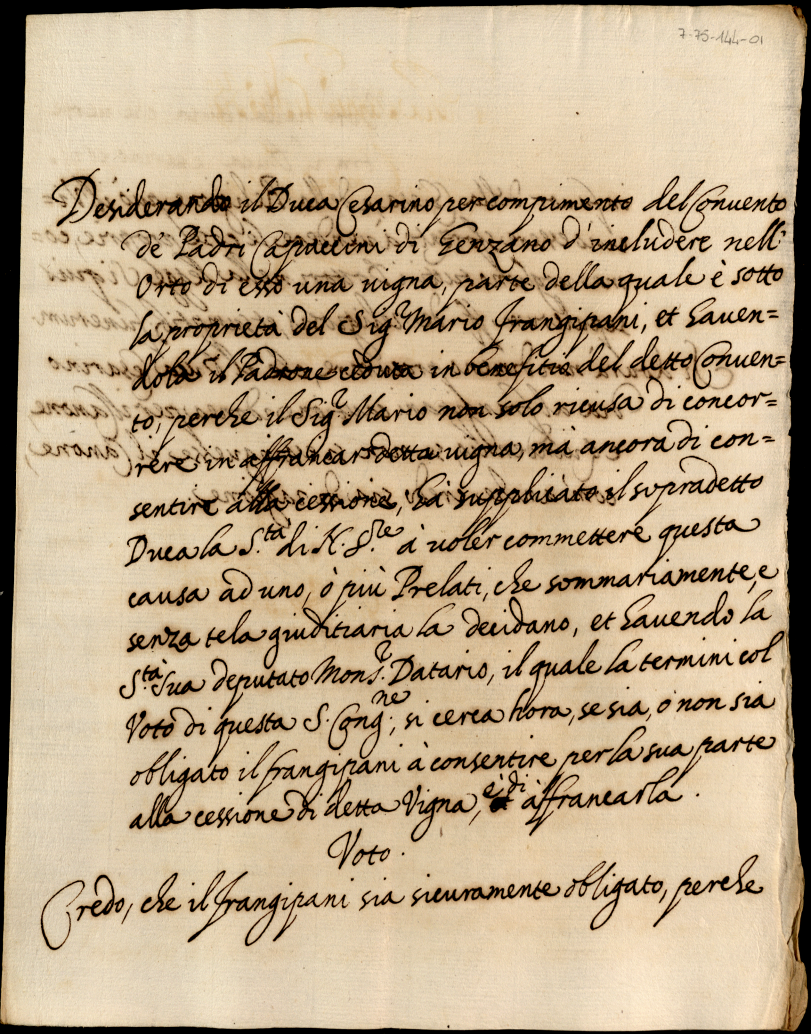 7-75-144-01
Desiderando il Duca Cesarino per compimento del Convento
de' Padri Capuccini di Genzano d'includere nell'
Orto di esso una vigna, parte della quale è sotto
la proprietà del Sig.r Mario Frangipani, et haven=
dola il Padrone ceduta in beneficio del detto Conven=
to, perche il Sig.r Mario non solo ricusa di concor=
rere in affrancar detta vigna, mà ancora di con=
sentire alla cessione, hà supplicato il sopradetto
Duca la S.tà di N. S.re à voler commettere questa
causa ad uno, ò più Prelati, che sommariamente, e
senza tela giuditiaria la decidano, et havendo la
S.tà Sua deputato Mons.r Datario, il quale la termini col
Voto di questa S. Cong.ne, si cerca hora, se sia, ò non sia
obligato il frangipani à consentire per la sua parte
alla cessione di detta Vigna, è di affrancarla.
Voto.
Credo, che il frangipani sia sicuramente obligato, perche